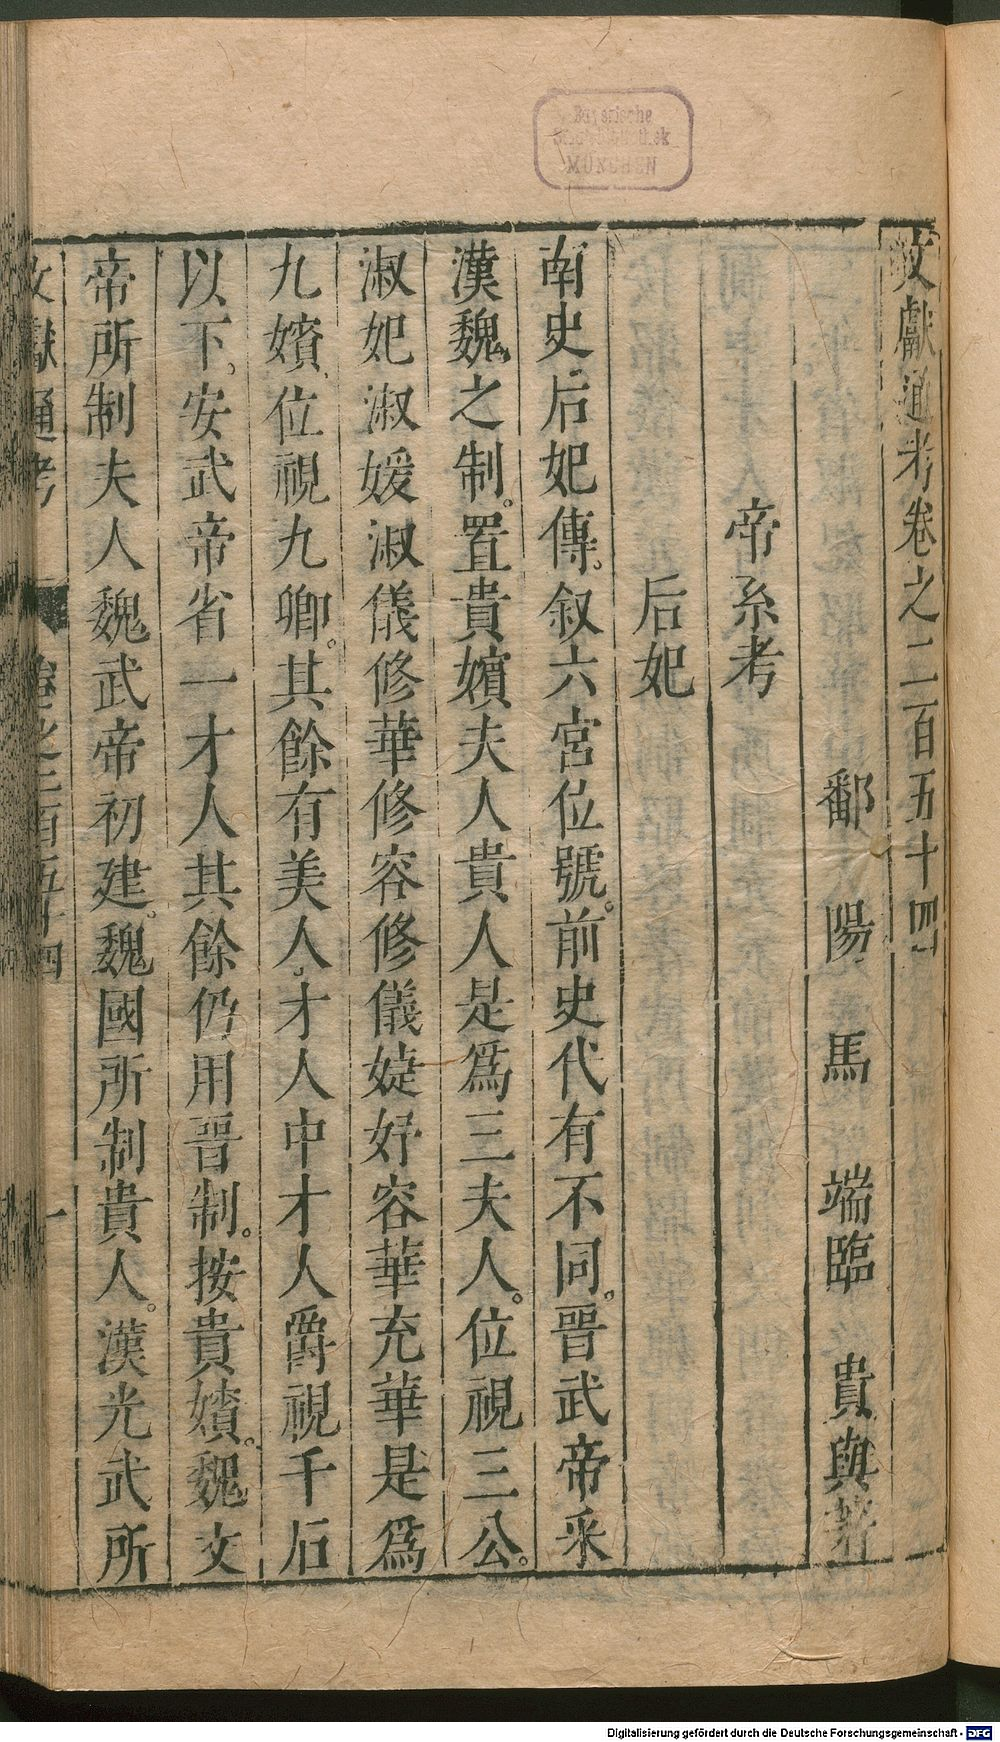 文獻通考卷之二百五十四
鄱陽馬端臨貴與著
帝系考
后妃
南史后妃傳。叙六宮位號。前史代有不同。晉武帝采
漢魏之制。置貴嬪夫人貴人是爲三夫人。位視三公。
淑妃淑媛淑儀修華修容修儀婕妤容華充華是爲
九嬪位視九卿。其餘有美人。才人中才人爵視千石
以下。安武帝省一才人其餘仍用晉制。按貴嬪。魏文
帝所制夫人魏武帝初建。魏國所制貴人。漢光武所
文獻通考 卷之二百五十四 一
Bayerische
Staatsbibliothek
MÜNCHEN
Digitalisierung gefördert durch die Deutsche Forschungsgemeinschaft - DFG